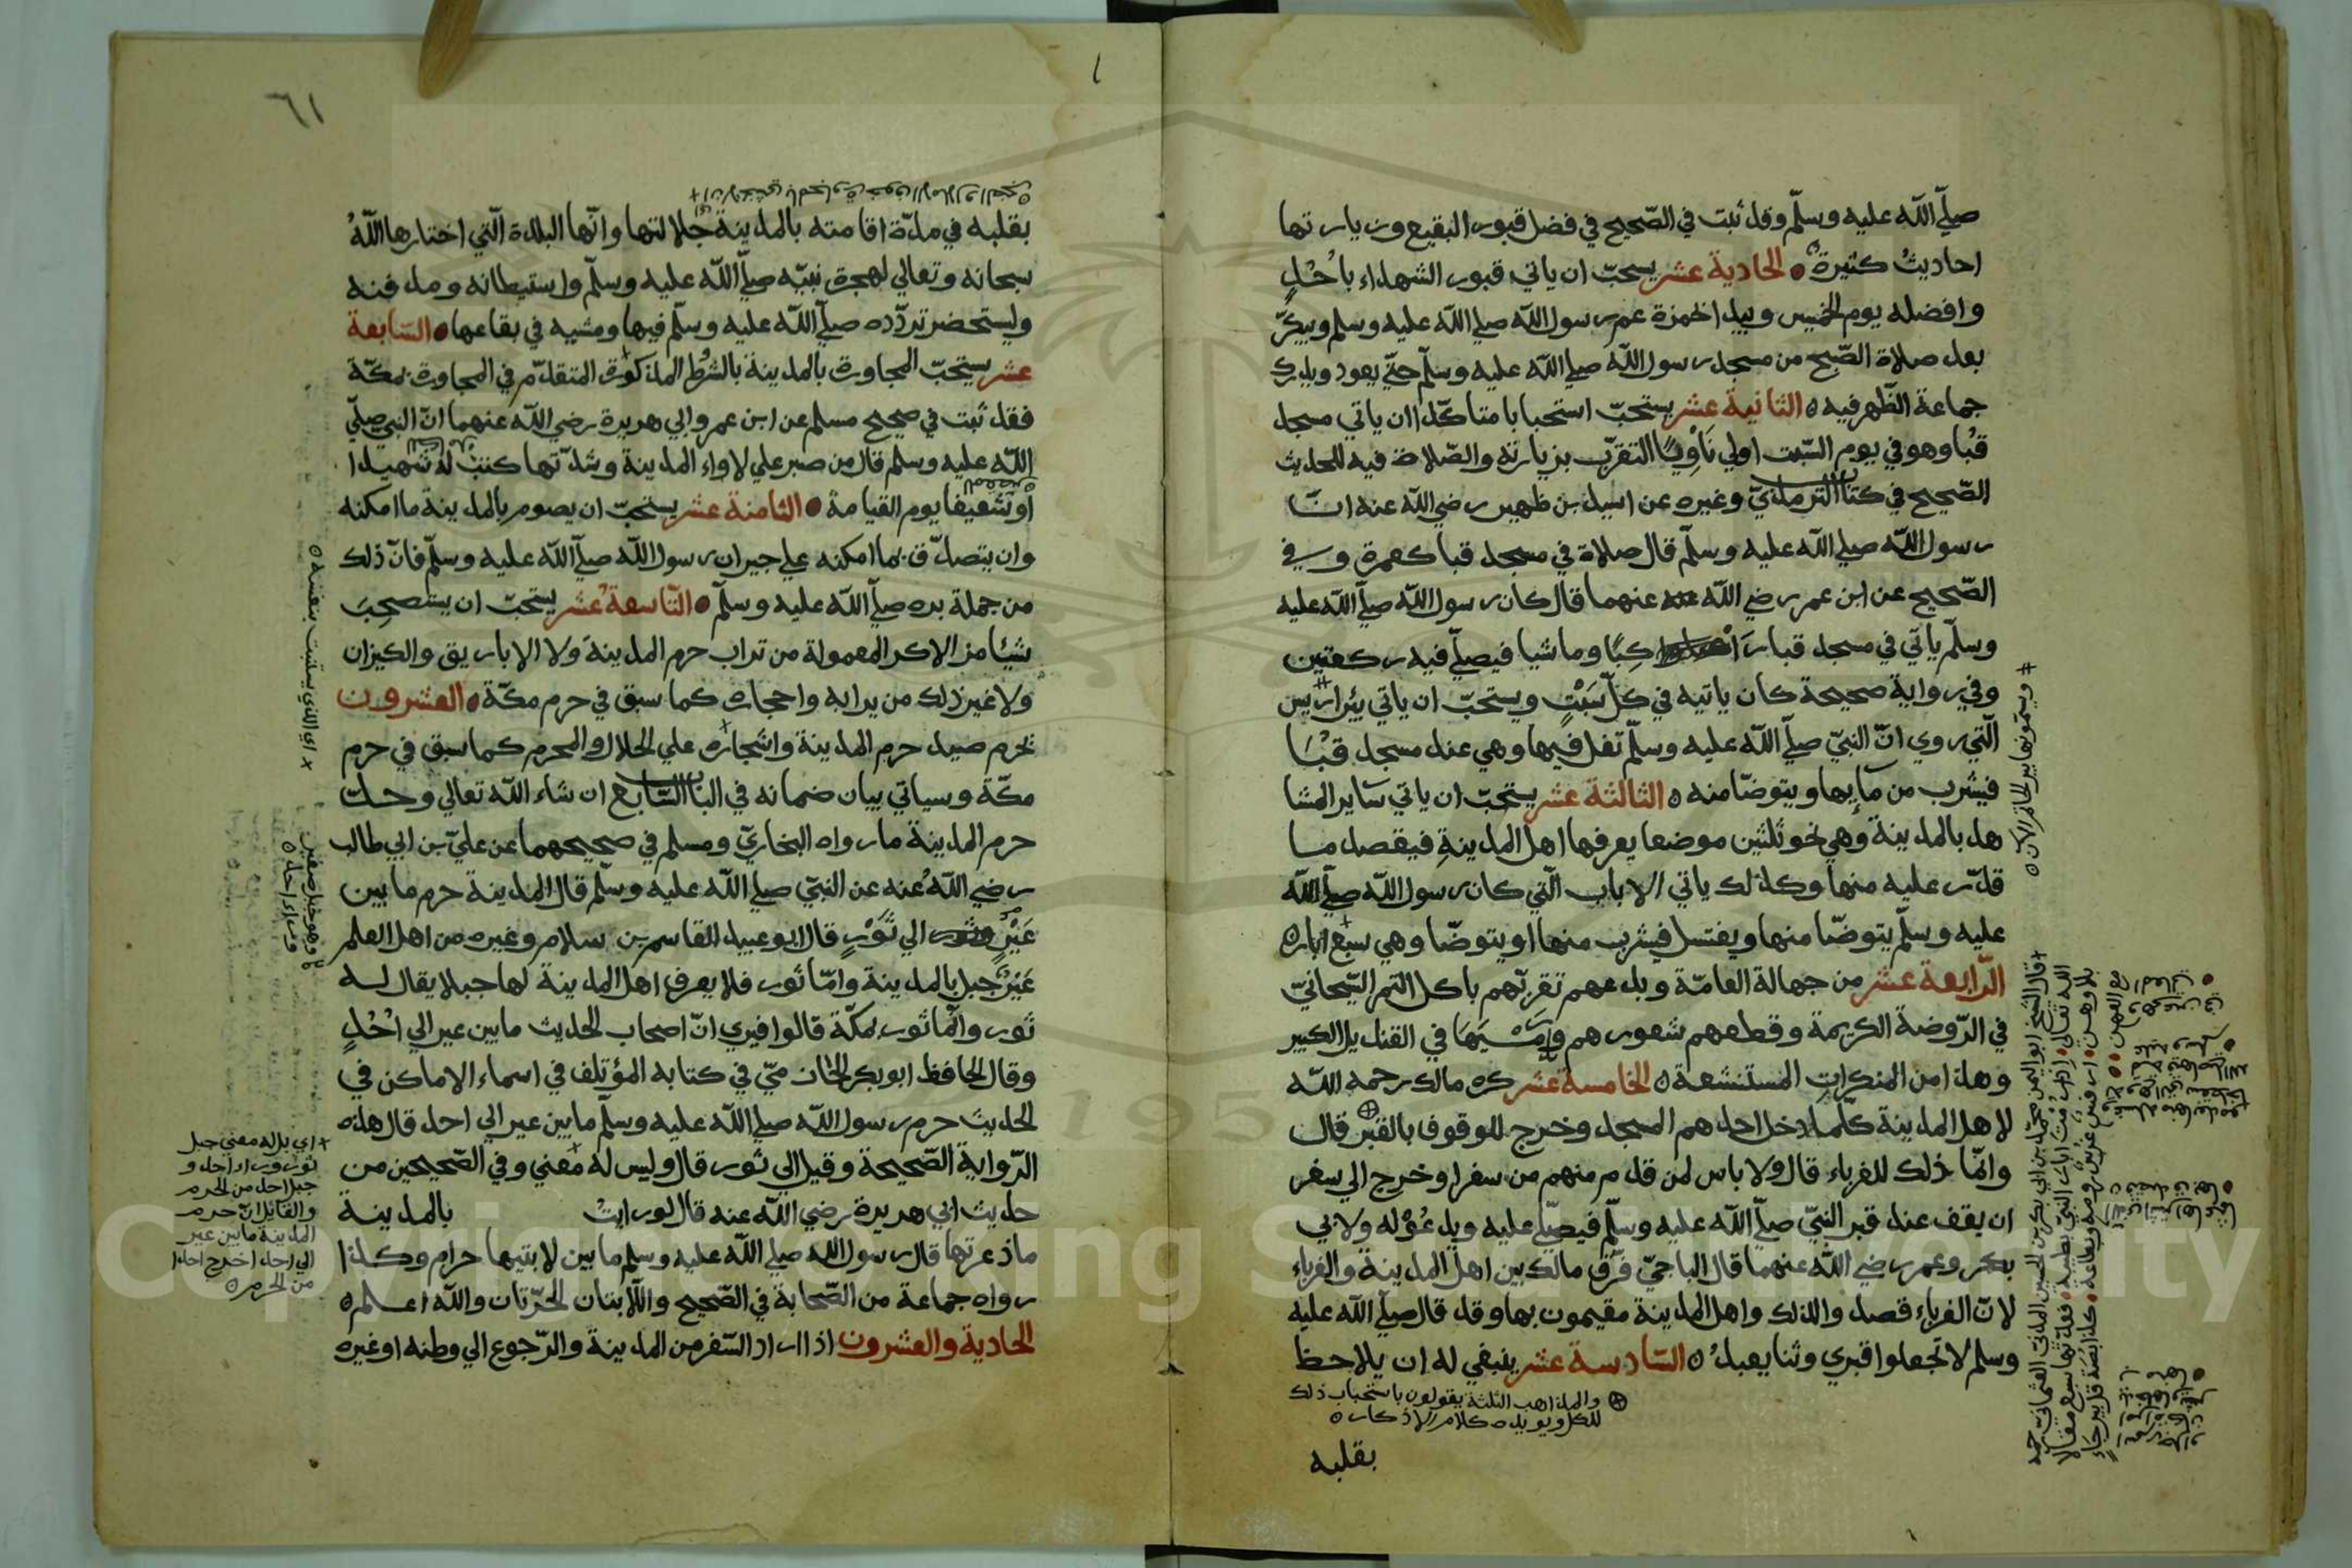 صلّي اللّه عليه وسلّم وقد ثبت في الصّحيح في فضل قبور البقيع وزيارتها
احاديثُ كثيرة الحادية عشر يستحبّ ان ياتي قبور الشهداء باُحُدٍ
وافضله يوم الخميس ويبدا بحمزة عم رسول اللّه صلي اللّه عليه وسلم ويبكّر
بعد صلاة الصّبح من مسجد رسول اللّه صلي اللّه عليه وسلّم حتّي يعود ويدرك
جماعة الظّهر فيه ٥ الثانية عشر يستحبّ استحبابا متاكّدا ان ياتي مسجد
قُبا وهو في يوم السّبت اولي نَاوِيًا التقرّب بزيارته والصّلاة فيه للحديث
الصّحيح في كتاب الترمذيّ وغيره عن اسيد بن ظهير رضي اللّه عنه انّ
رسول اللّه صلي اللّه عليه وسلّم قال صلاة في مسجد قبا كعمرة وفي
الصّحيح عن ابن عمر رضي اللّه عنهما قال كان رسول اللّه صلّي اللّه عليه
وسلّم ياتي في مسجد قبا راكِبًا وماشيا فيصلّي فيه ركعتين
وفي رواية صحيحة كان ياتيه في كلّ سَبْتٍ ويستحبّ ان ياتي بئر اريس
الّتي روي انّ النبيّ صلّي اللّه عليه وسلّم تفل فيها وهي عند مسجد قُبَا
فيشرب من مآيها ويتوضّا منه ٥ الثالثة عشر يستحبّ ان ياتي ساير المشا
هد بالمدينة وهي نحو ثلثين موضعا يعرفها اهل المدينةِ فيقصد ما
قدّر عليه منها وكذلك ياتي الاباب الّتي كان رسول اللّه صلّي اللّه
عليه وسلّم يتوضّا منها ويغتسل فيشرب منها او يتوضّا وهي سبع ابار ٥
الرّابعة عشر من جهالة العامّة وبدعهم تقربّهم باكل التمر الصّيحانيّ
في الرّوضة الكريمة وقطعهم شعورهم ورَمْيَهَا في القنديل الكبير
وهذا من المنكراتِ المستشنعة ٥ الخامسة عشر كره مالك رحمه اللّه
لاهل المدينة كلّما دخل احدهم المسجد وخرج للوقوف بالقبر قال
وانّما ذلك للغرباء قال ولا باس لمن قدم منهم من سفر او خرج الي سفر
ان يقف عند قبر النبيّ صلّي اللّه عليه وسلّم فيصلّي عليه ويدعُوْ له ولابي
بكر وعمر رضي اللّه عنهما قال الباجيّ فَرّقَ مالك بين اهل المدينة والغرباء
لانّ الغرباء قصدوا لذلك واهل المدينة مقيمون بها وقد قال صلّي اللّه عليه
وسلم لا تجعلوا قبري وثنا يعبدُ ٥ السّادسة عشر ينبغي له ان يلاحظ
والمذاهب الثلثة يقولون باستحباب ذلك
للكلّ ويويده كلام الاذكار ٥
بقلبه
# ويسمّونها بير الخاتم الآن ٥
٦١
بقلبه في مدّة اقامته بالمدينة جلالتها وانّها البلدة الّتي اختارها اللّهُ
سبحانه وتعالي لهجرة نبيّه صلّي اللّه عليه وسلّم واستيطانه ومدفنه
وليستحضر تردّده صلّي اللّه عليه وسلّم فيها ومشيه في بقاعها السّابعة
عشر يستحبّ المجاورة بالمدينة بالشرط المذكور المتقدّم في المجاورة بمكّة
فقد ثبت في صحيح مسلم عن ابن عمر وابي هريرة رضي اللّه عنهما انّ النبي صلّي
اللّه عليه وسلم قال من صبر علي لاواء المدينة وشدّتها كنت له شهيدا
او شفيعا يوم القيامة الثامنة عشر يستحبّ ان يصوم بالمدينة ما امكنه
وان يتصدّق بما امكنه علي جيران رسول اللّه صلّي اللّه عليه وسلّم فانّ ذلك
من جملة بره صلّي اللّه عليه وسلّم التّاسعة عشر يستحبّ ان يستصحِبَ
شيئا من الاكر المعمولة من تراب حرم المدينة ولا الاباريق والكيزان
ولا غير ذلك من ترابه واحجاره كما سبق في حرم مكّة العشرون
تحرم صيد حرم المدينة واشجاره علي الحلال والمحرم كما سبق في حرم
مكّة وسياتي بيان ضمانه في الباب السّابع ان شاء اللّه تعالي وحدّ
حرم المدينة ما رواه البخاريّ ومسلم في صحيحهما عن عليّ بن ابي طالب
رضي اللّهُ عنه عن النبيّ صلي اللّه عليه وسلّم قال المدينة حرم ما بين
عَيْرٍ الي ثَوْرٍ قال ابو عبيد القاسم بن سلام وغيره من اهل العلم
عَيْر جبل بالمدينة وامّا ثور فلا يعرف اهل المدينة لها جبلا يقال له
ثور وانّما ثور بمكّة قالوا فيري انّ اصحاب الحديث ما بين عير الي اُحُدٍ
وقال الحافظ ابو بكر الحازميّ في كتابه المؤتلف في اسماء الاماكن في
الحديث حرم رسول اللّه صلي اللّه عليه وسلّم ما بين عير الي احد قال هذه
الرّواية الصّحيحة وقيل الي ثور قال وليس له معني وفي الصّحيحين من
حديث ابي هريرة رضي اللّه عنه قال لو رايتُ بالمدينة
ما ذعرتها قال رسول اللّه صلي اللّه عليه وسلم ما بين لابتيها حرام وكذا
رواه جماعة من الصّحابة في الصّحيح واللّابتان الحرّتان واللّه اعلم ٥
الحادية والعشرون اذا اراد السّفر من المدينة والرّجوع الي وطنه او غيره
× اي الذي يستنبت بنفسه ٥
وهو جبل صغير
وراء احد ٥
+ اي بدله معني جبل
ثور وراء احد و
جبل احد من الحرم
والقايل انّ حرم
المدينة ما بين عير
الي احد اخرج احدا
من الحرم ٥
Copyright © King Saud University
195